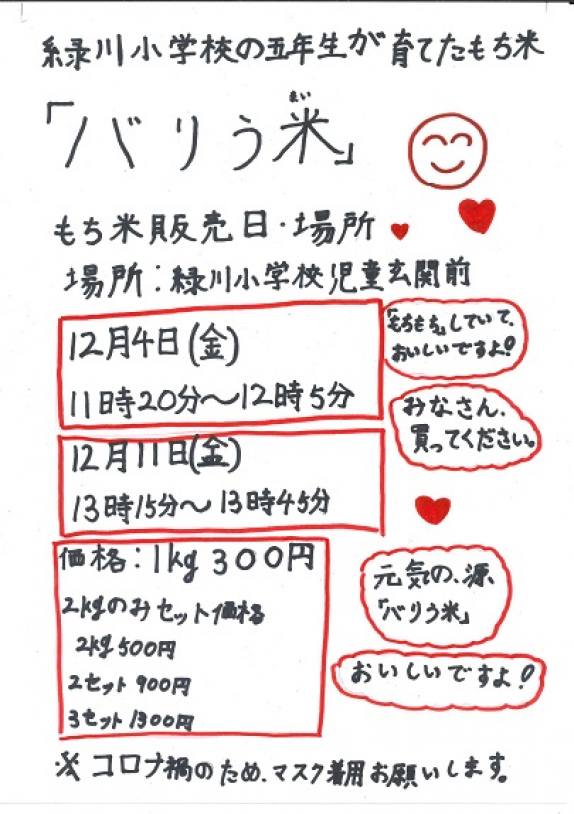 緑川小学校の五年生が育てたもち米
「バリう米」
まい
もち米販売日・場所
場所：緑川小学校児童玄関前
12月4日(金)
11時20分～12時5分
「もちもち」していて、
おいしいですよ！
みなさん、
買ってください。
12月11日(金)
13時15分～13時45分
価格：1kg 300円
2kgのみセット価格
2kg 500円
2セット 900円
3セット 1300円
元気の、源
「バリう米」
おいしいですよ！
※コロナ禍のため、マスク着用お願いします。